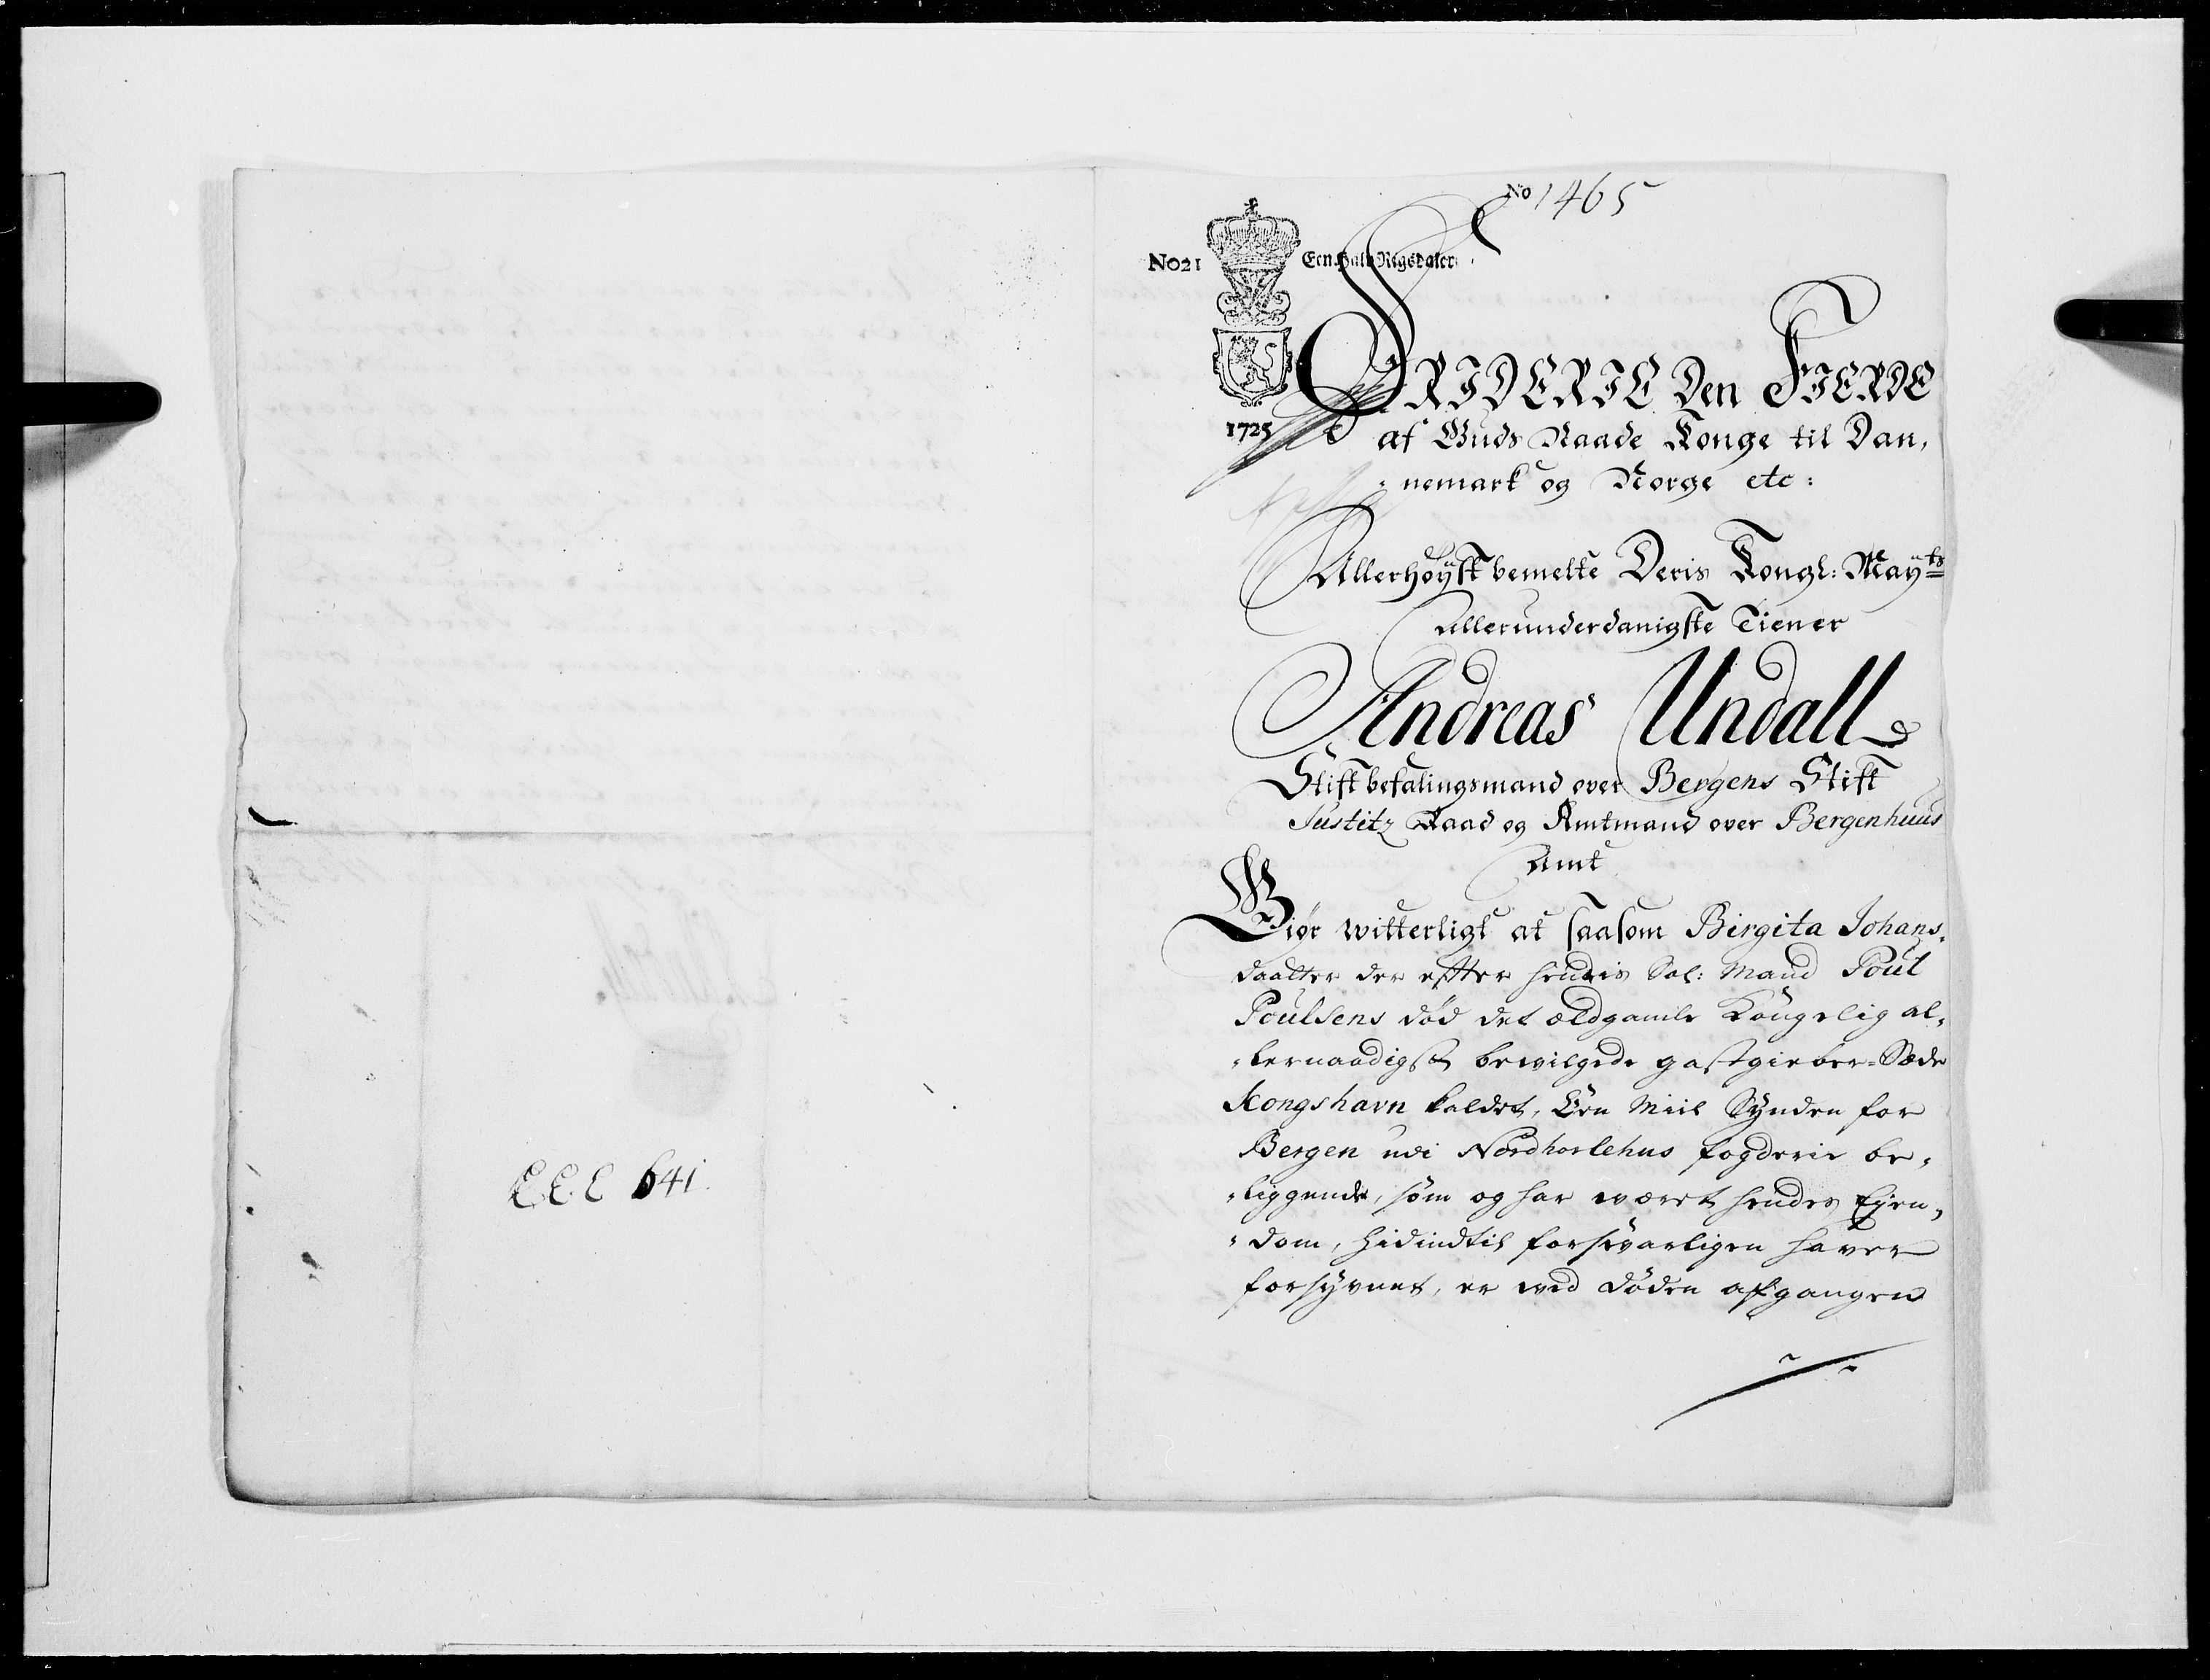 E.E.E 641.
No 1465
No21
Een Halv Rigsdaler
1725
FRIDERIC Den FIERDE
af Guds Naade Konge til Dan,
nemark og Norge etc:
Allerhøyst bemelte Deris Kongl: Mayts
Allerunderdanigste Tiener
Andreas Undall
Stiftbefalingsmand over Bergens Stift
Justitz Raad og Amtmand over Bergenhuus
Amt
Giør witterligt at saasom Birgita Johans,
daatter der efter hendis Sal: Mand Poul
Poulsens død det ældgamle Kongelig al,
lernaadigst bewilgede gastgieber-Sæde
Kongshavn kaldet, Een Miil Synden for
Bergen udi Nordhorlehus fogderie be,
liggende, som og har wæret hendes Ejen,
dom, hidindtil forsvarligen haver
forsyvnet, er wed døden afgangen